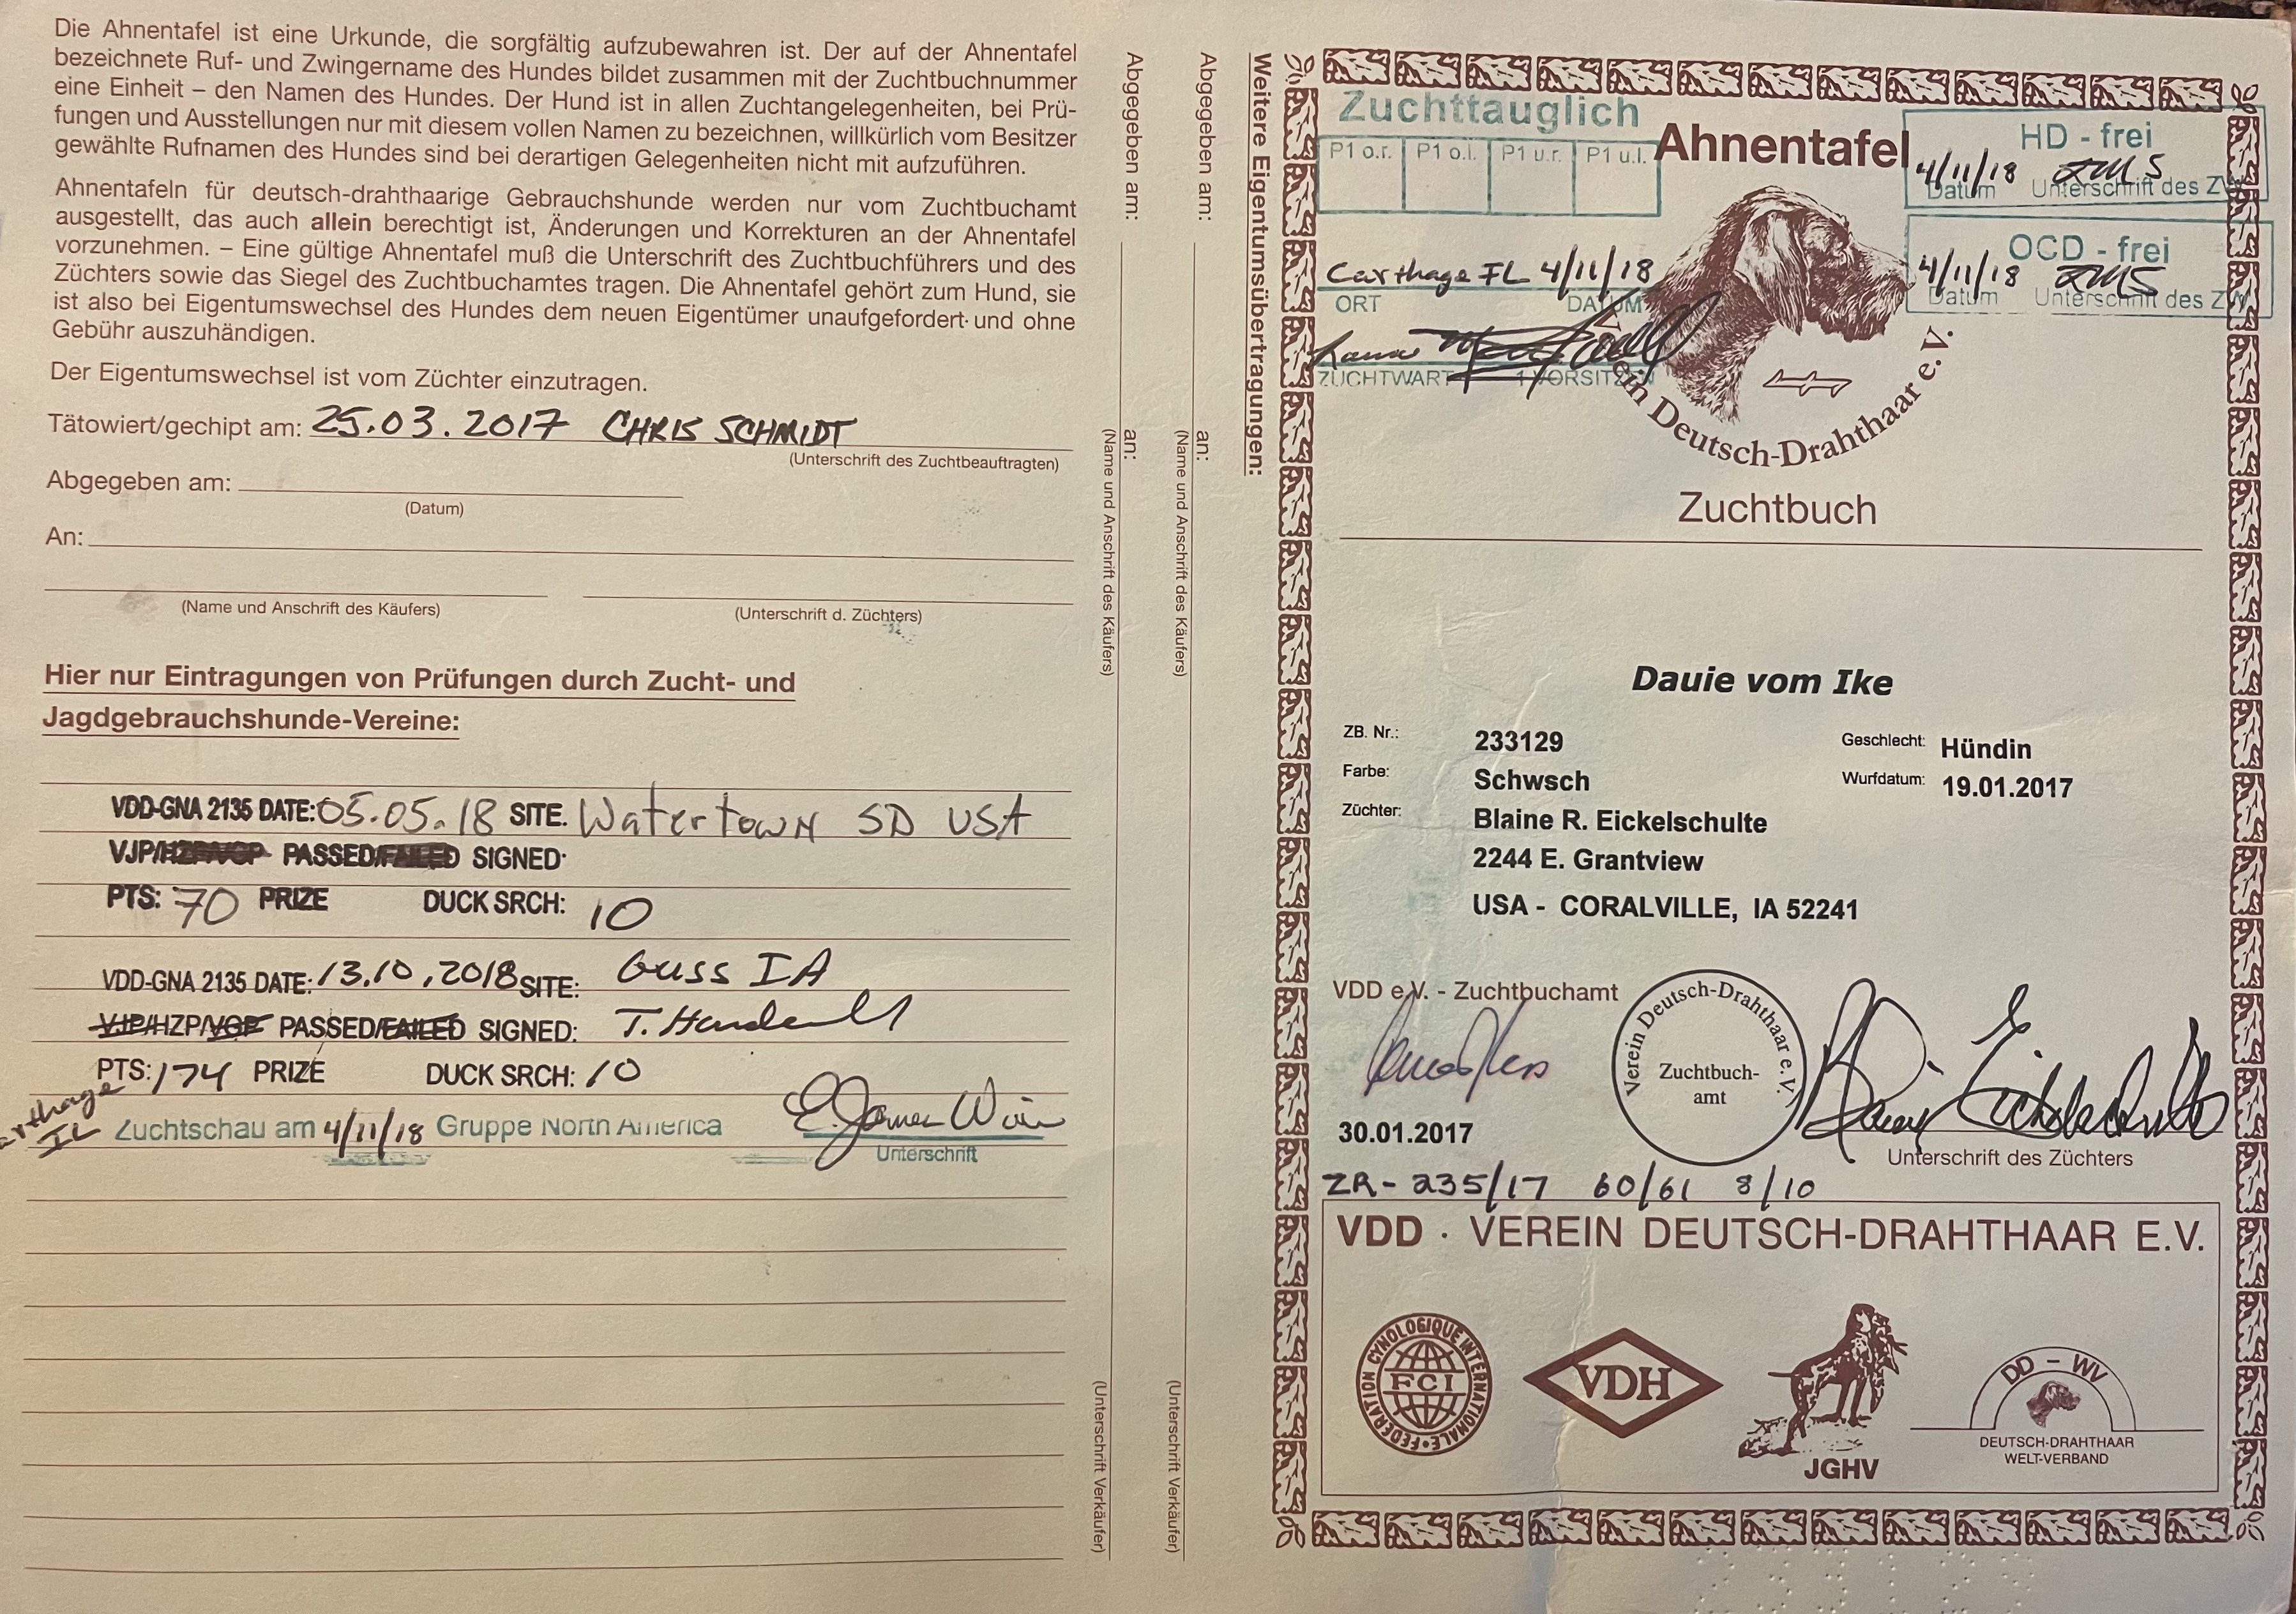 Die Ahnentafel ist eine Urkunde, die sorgfältig aufzubewahren ist. Der auf der Ahnentafel
bezeichnete Ruf- und Zwingername des Hundes bildet zusammen mit der Zuchtbuchnummer
eine Einheit – den Namen des Hundes. Der Hund ist in allen Zuchtangelegenheiten, bei Prü-
fungen und Ausstellungen nur mit diesem vollen Namen zu bezeichnen, willkürlich vom Besitzer
gewählte Rufnamen des Hundes sind bei derartigen Gelegenheiten nicht mit aufzuführen.
Ahnentafeln für deutsch-drahthaarige Gebrauchshunde werden nur vom Zuchtbuchamt
ausgestellt, das auch allein berechtigt ist, Änderungen und Korrekturen an der Ahnentafel
vorzunehmen. – Eine gültige Ahnentafel muß die Unterschrift des Zuchtbuchführers und des
Züchters sowie das Siegel des Zuchtbuchamtes tragen. Die Ahnentafel gehört zum Hund, sie
ist also bei Eigentumswechsel des Hundes dem neuen Eigentümer unaufgefordert und ohne
Gebühr auszuhändigen.
Der Eigentumswechsel ist vom Züchter einzutragen.
Tätowiert/gechipt am: 25.03.2017 CHRIS SCHMIDT
(Unterschrift des Zuchtbeauftragten)
Abgegeben am:
(Datum)
An:
(Name und Anschrift des Käufers) (Unterschrift d. Züchters)
Hier nur Eintragungen von Prüfungen durch Zucht- und
Jagdgebrauchshunde-Vereine:
VDD-GNA 2135 DATE: 05.05.18 SITE. Watertown SD USA
VJP/HZP/VGP PASSED/FAILED SIGNED:
PTS: 70 PRIZE DUCK SRCH: 10
VDD-GNA 2135 DATE: 13.10.2018 SITE: Guss IA
VJP/HZP/VGP PASSED/FAILED SIGNED: T.
PTS: 174 PRIZE DUCK SRCH: 10
IL Zuchtschau am 4/11/18 Gruppe North America E. James
Unterschrift
Abgegeben am: an:
(Name und Anschrift des Käufers) (Unterschrift Verkäufer)
Abgegeben am: an:
(Name und Anschrift des Käufers) (Unterschrift Verkäufer)
Weitere Eigentumsübertragungen:
Zuchttauglich
P1 o.r. P1 o.l. P1 u.r. P1 u.l.
Carthage IL 4/11/18
ORT DATUM
ZUCHTWART 1 VORSITZEN
Ahnentafel
HD - frei
4/11/18 RMS
Datum Unterschrift des ZW
OCD - frei
4/11/18 RMS
Datum Unterschrift des ZW
Verein Deutsch-Drahthaar e. V.
Zuchtbuch
Dauie vom Ike
ZB. Nr.: 233129 Geschlecht: Hündin
Farbe: Schwsch Wurfdatum: 19.01.2017
Züchter: Blaine R. Eickelschulte
2244 E. Grantview
USA - CORALVILLE, IA 52241
VDD e.V. - Zuchtbuchamt
Verein Deutsch-Drahthaar e. V.
Zuchtbuch-
amt
30.01.2017
Unterschrift des Züchters
ZR - 235/17 60/61 8/10
VDD · VEREIN DEUTSCH-DRAHTHAAR E.V.
FEDERATION CYNOLOGIQUE INTERNATIONALE
FCI
VDH
JGHV
DD - WV
DEUTSCH-DRAHTHAAR
WELT-VERBAND